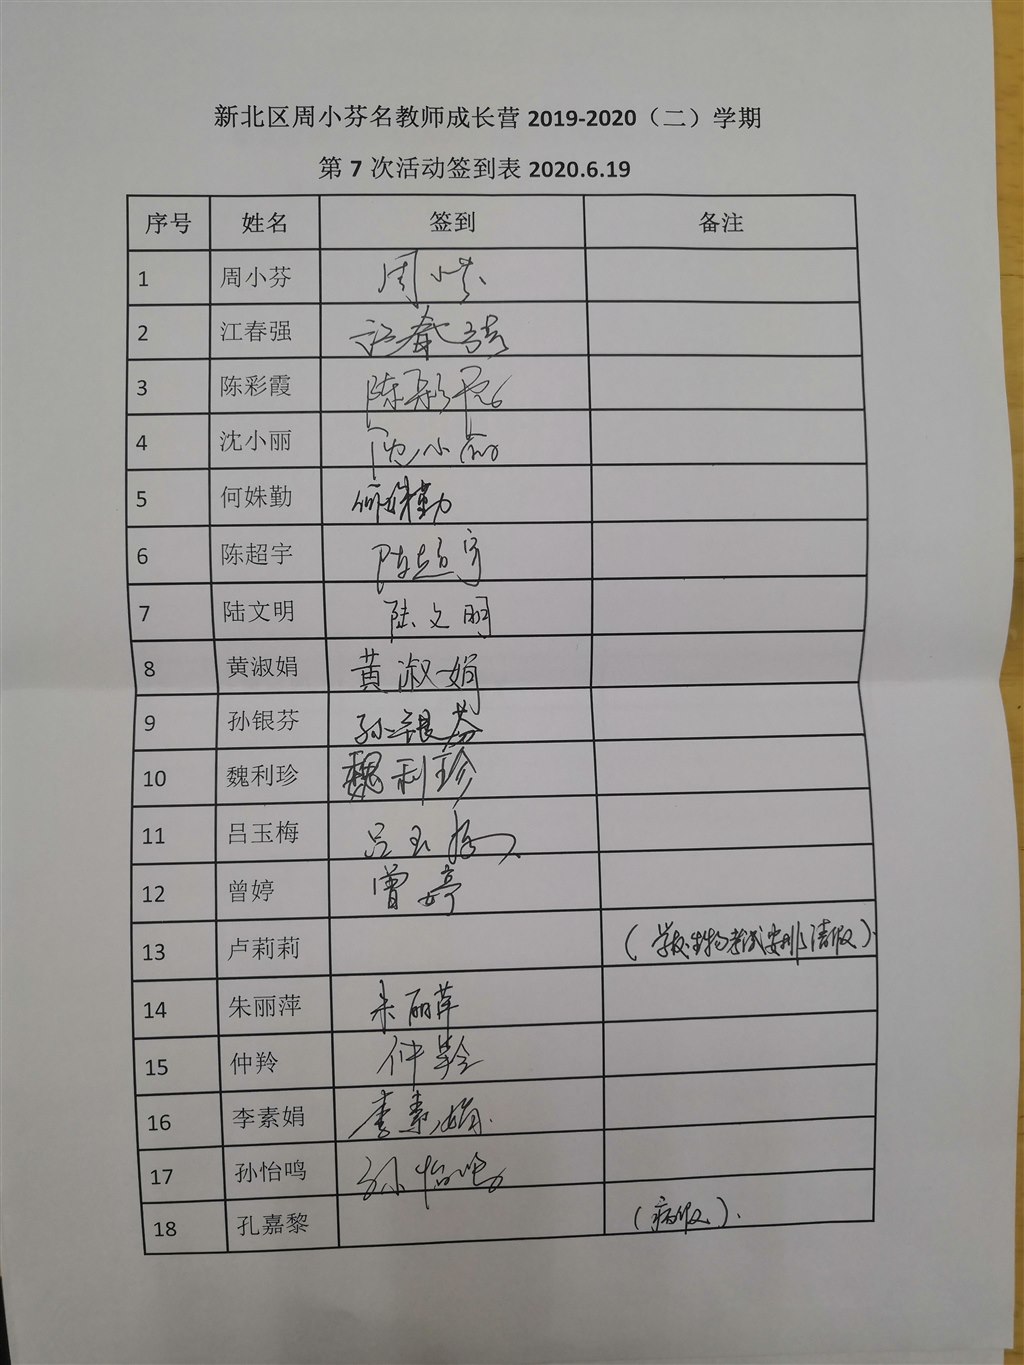 新北区周小芬名教师成长营 2019-2020（二）学期
第 7 次活动签到表 2020.6.19
序号 姓名 签到 备注
1 周小芬 周小芬
2 江春强 江春强
3 陈彩霞 陈彩霞
4 沈小丽 沈小丽
5 何姝勤 何姝勤
6 陈超宇 陈超宇
7 陆文明 陆文明
8 黄淑娟 黄淑娟
9 孙银芬 孙银芬
10 魏利珍 魏利珍
11 吕玉梅 吕玉梅
12 曾婷 曾婷
13 卢莉莉 （学校生物考试安排请假）.
14 朱丽萍 朱丽萍
15 仲羚 仲羚
16 李素娟 李素娟.
17 孙怡鸣 孙怡鸣
18 孔嘉黎 （病假）.